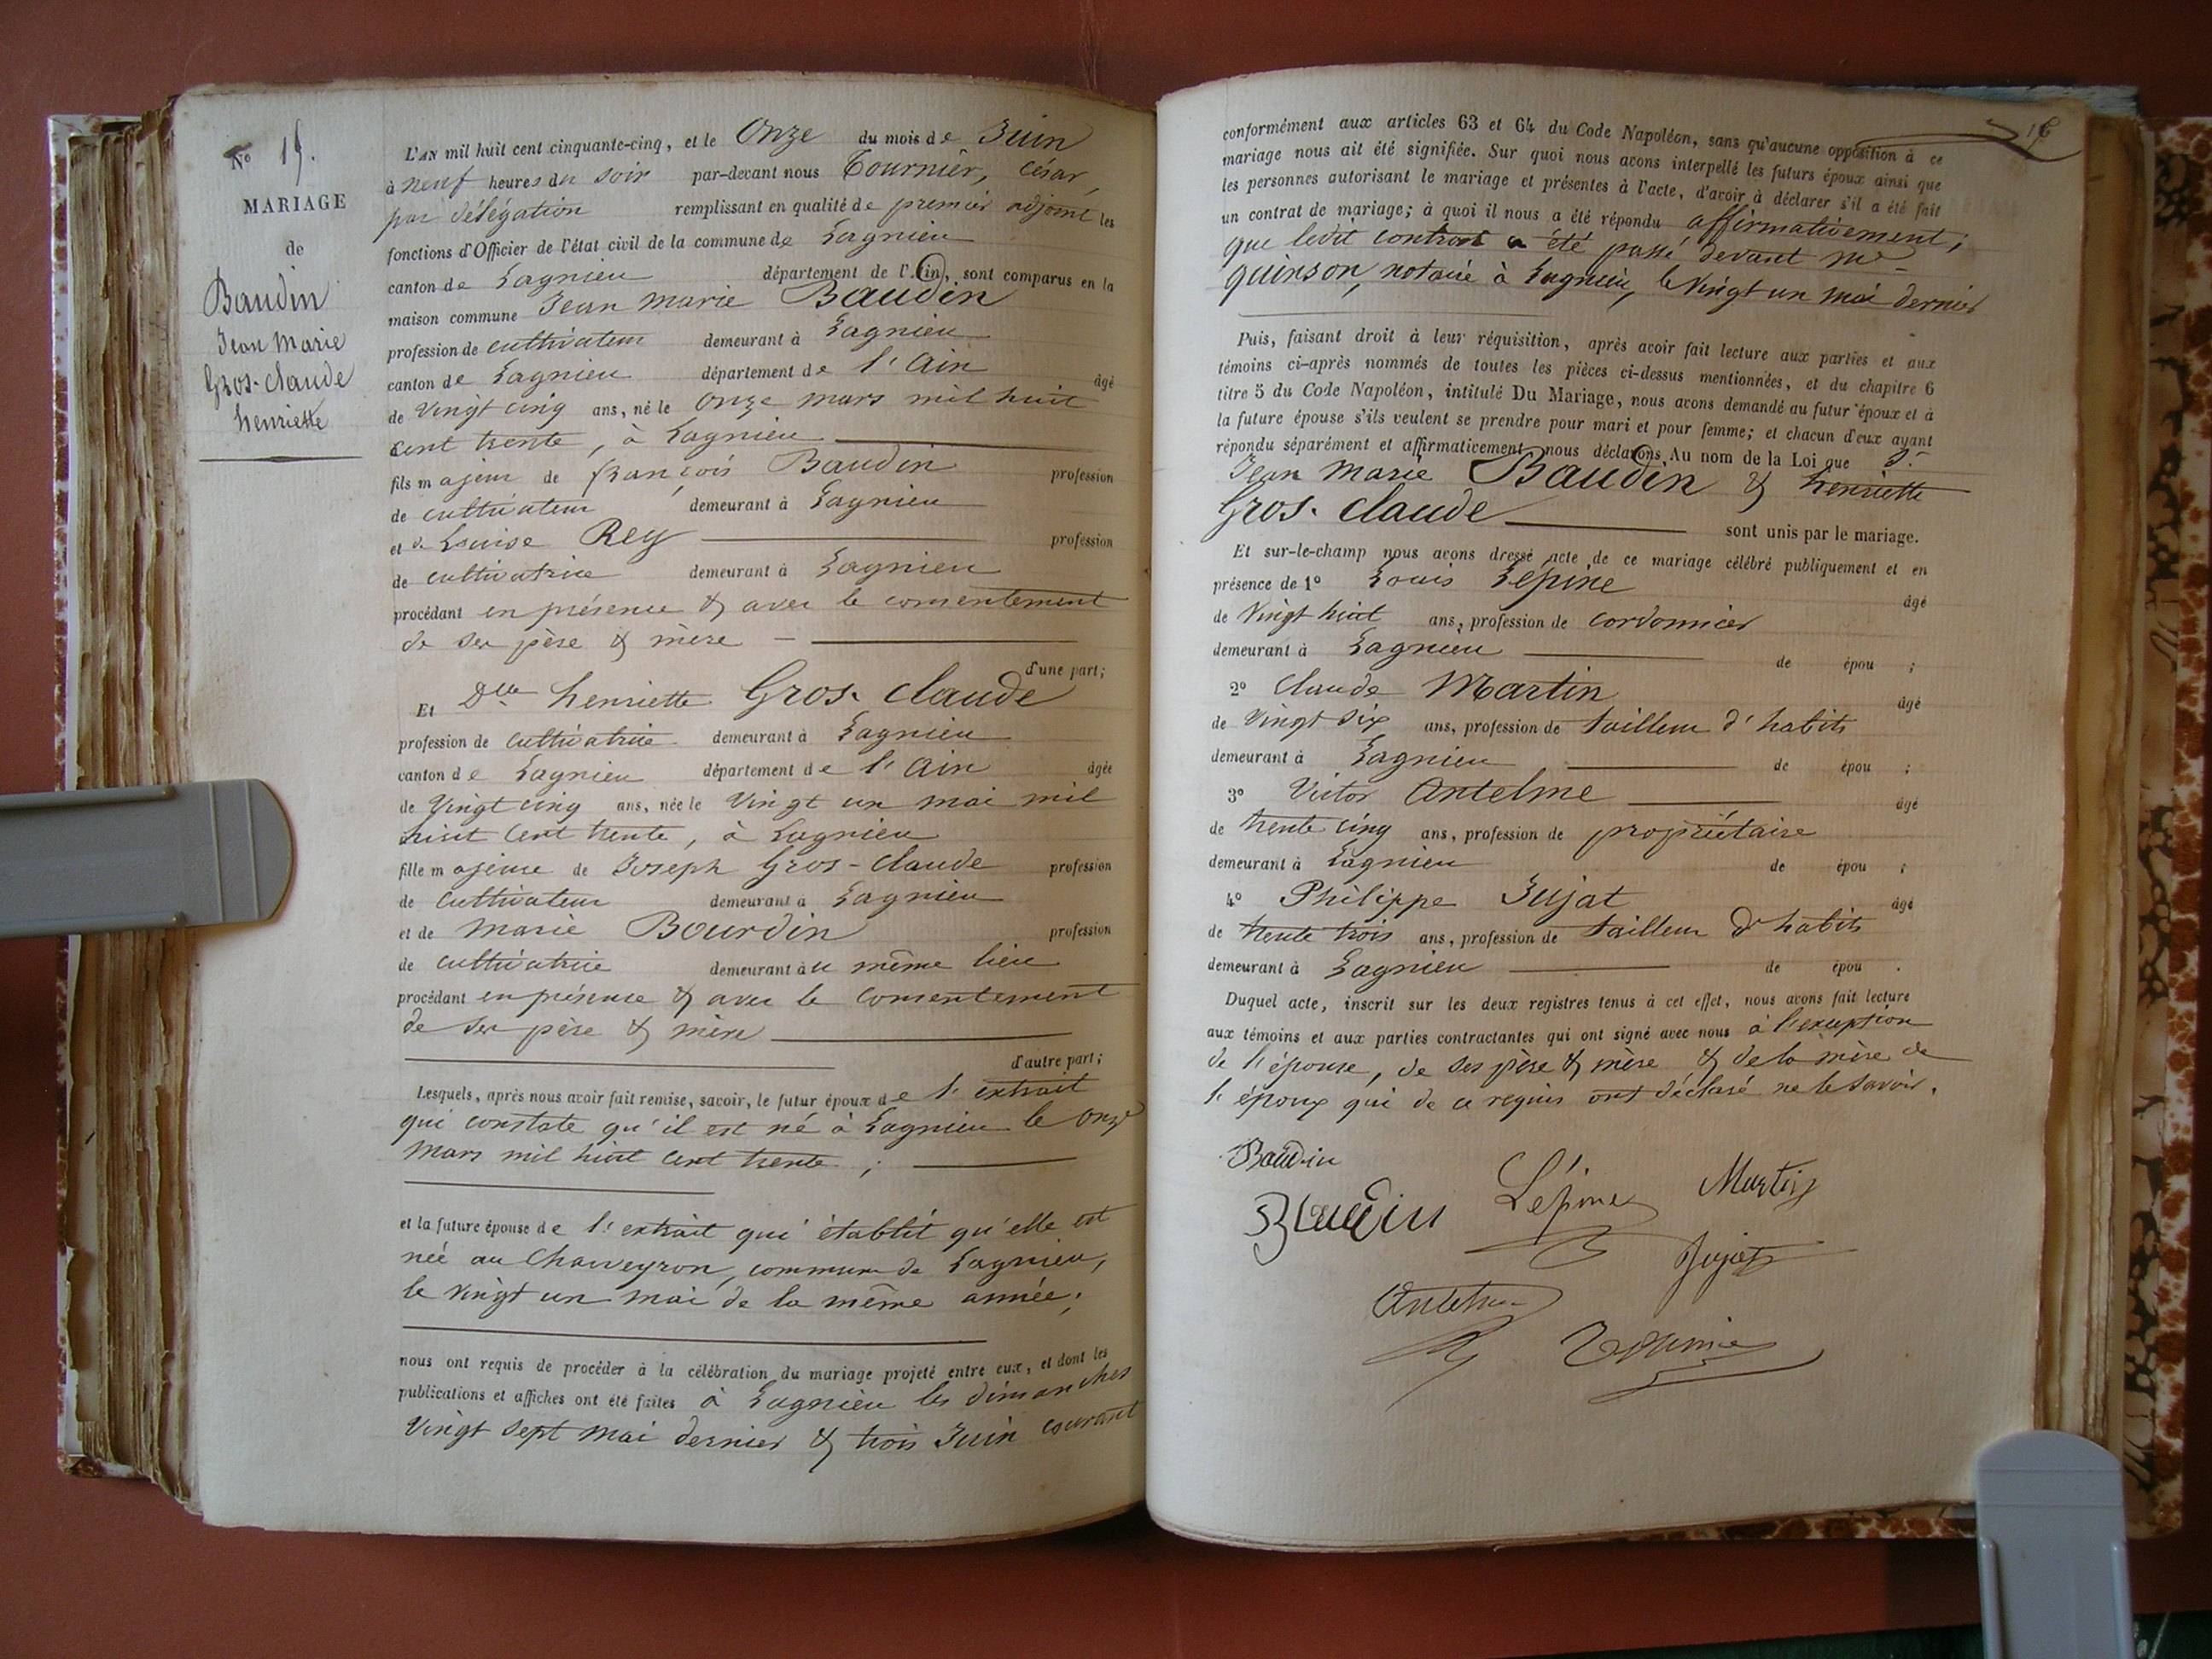 Nº 15.
MARIAGE
de
Baudin
Jean Marie
Gros-claude
henriette
L'AN mil huit cent cinquante-cinq, et le Onze du mois de Juin
à neuf heures du soir par-devant nous Tournier, César,
par délégation remplissant en qualité de premier adjoint les
fonctions d'Officier de l'état civil de la commune de Lagnieu
canton de Lagnieu département de l'Ain, sont comparus en la
maison commune Jean Marie Baudin
profession de cultivateur demeurant à Lagnieu
canton de Lagnieu département de l'Ain âgé
de Vingt cinq ans, né le onze mars mil huit
cent trente, à Lagnieu
fils majeur de françois Baudin profession
de cultivateur demeurant à Lagnieu
et de Louise Rey profession
de cultivatrice demeurant à Lagnieu
procédant en présence & avec le consentement
de ses père & mère
d'une part;
Et Dlle henriette Gros-claude
profession de cultivatrice demeurant à Lagnieu
canton de Lagnieu département de l'Ain âgée
de Vingt cinq ans, née le Vingt un mai mil
huit cent trente, à Lagnieu
fille majeure de Joseph Gros-claude profession
de cultivateur demeurant à Lagnieu
et de Marie Bourdin profession
de cultivatrice demeurant au même lieu
procédant en présence & avec le consentement
de ses père & mère
d'autre part;
Lesquels, après nous avoir fait remise, savoir, le futur époux de l'extrait
qui constate qu'il est né à Lagnieu le onze
mars mil huit cent trente ;
et la future épouse de l'extrait qui établit qu'elle est
née au Chauveyron, commune de Lagnieu,
le vingt un mai de la même année;
nous ont requis de procéder à la célébration du mariage projeté entre eux, et dont les
publications et affiches ont été faites à Lagnieu les dimanches
Vingt sept mai dernier & trois Juin courant
16
conformément aux articles 63 et 64 du Code Napoléon, sans qu'aucune opposition à ce
mariage nous ait été signifiée. Sur quoi nous avons interpellé les futurs époux ainsi que
les personnes autorisant le mariage et présentes à l'acte, d'avoir à déclarer s'il a été fait
un contrat de mariage; à quoi il nous a été répondu affirmativement;
que ledit contrat a été passé devant me
quinson, notaire à Lagnieu, le vingt un mai dernier
Puis, faisant droit à leur réquisition, après avoir fait lecture aux parties et aux
témoins ci-après nommés de toutes les pièces ci-dessus mentionnées, et du chapitre 6
titre 5 du Code Napoléon, intitulé Du Mariage, nous avons demandé au futur époux et à
la future épouse s'ils veulent se prendre pour mari et pour femme; et chacun d'eux ayant
répondu séparément et affirmativement nous déclarons Au nom de la Loi que
Jean Marie Baudin & henriette
Gros-claude sont unis par le mariage.
Et sur-le-champ nous avons dressé acte de ce mariage célébré publiquement et en
présence de 1º Louis Lépine âgé
de Vingt huit ans, profession de cordonnier
demeurant à Lagnieu de épou ;
2º Claude Martin âgé
de Vingt six ans, profession de tailleur d'habits
demeurant à Lagnieu de épou ;
3º Victor Antelme âgé
de trente cinq ans, profession de propriétaire
demeurant à Lagnieu de épou ;
4º Philippe Jujat âgé
de trente trois ans, profession de tailleur d'habits
demeurant à Lagnieu de épou .
Duquel acte, inscrit sur les deux registres tenus à cet effet, nous avons fait lecture
aux témoins et aux parties contractantes qui ont signé avec nous à l'exception
de l'épouse, de ses père & mère & de la mère de
l'époux qui de ce requis ont déclaré ne le savoir.
Baudin
Baudin Lépine Martin
Jujat
Antelme